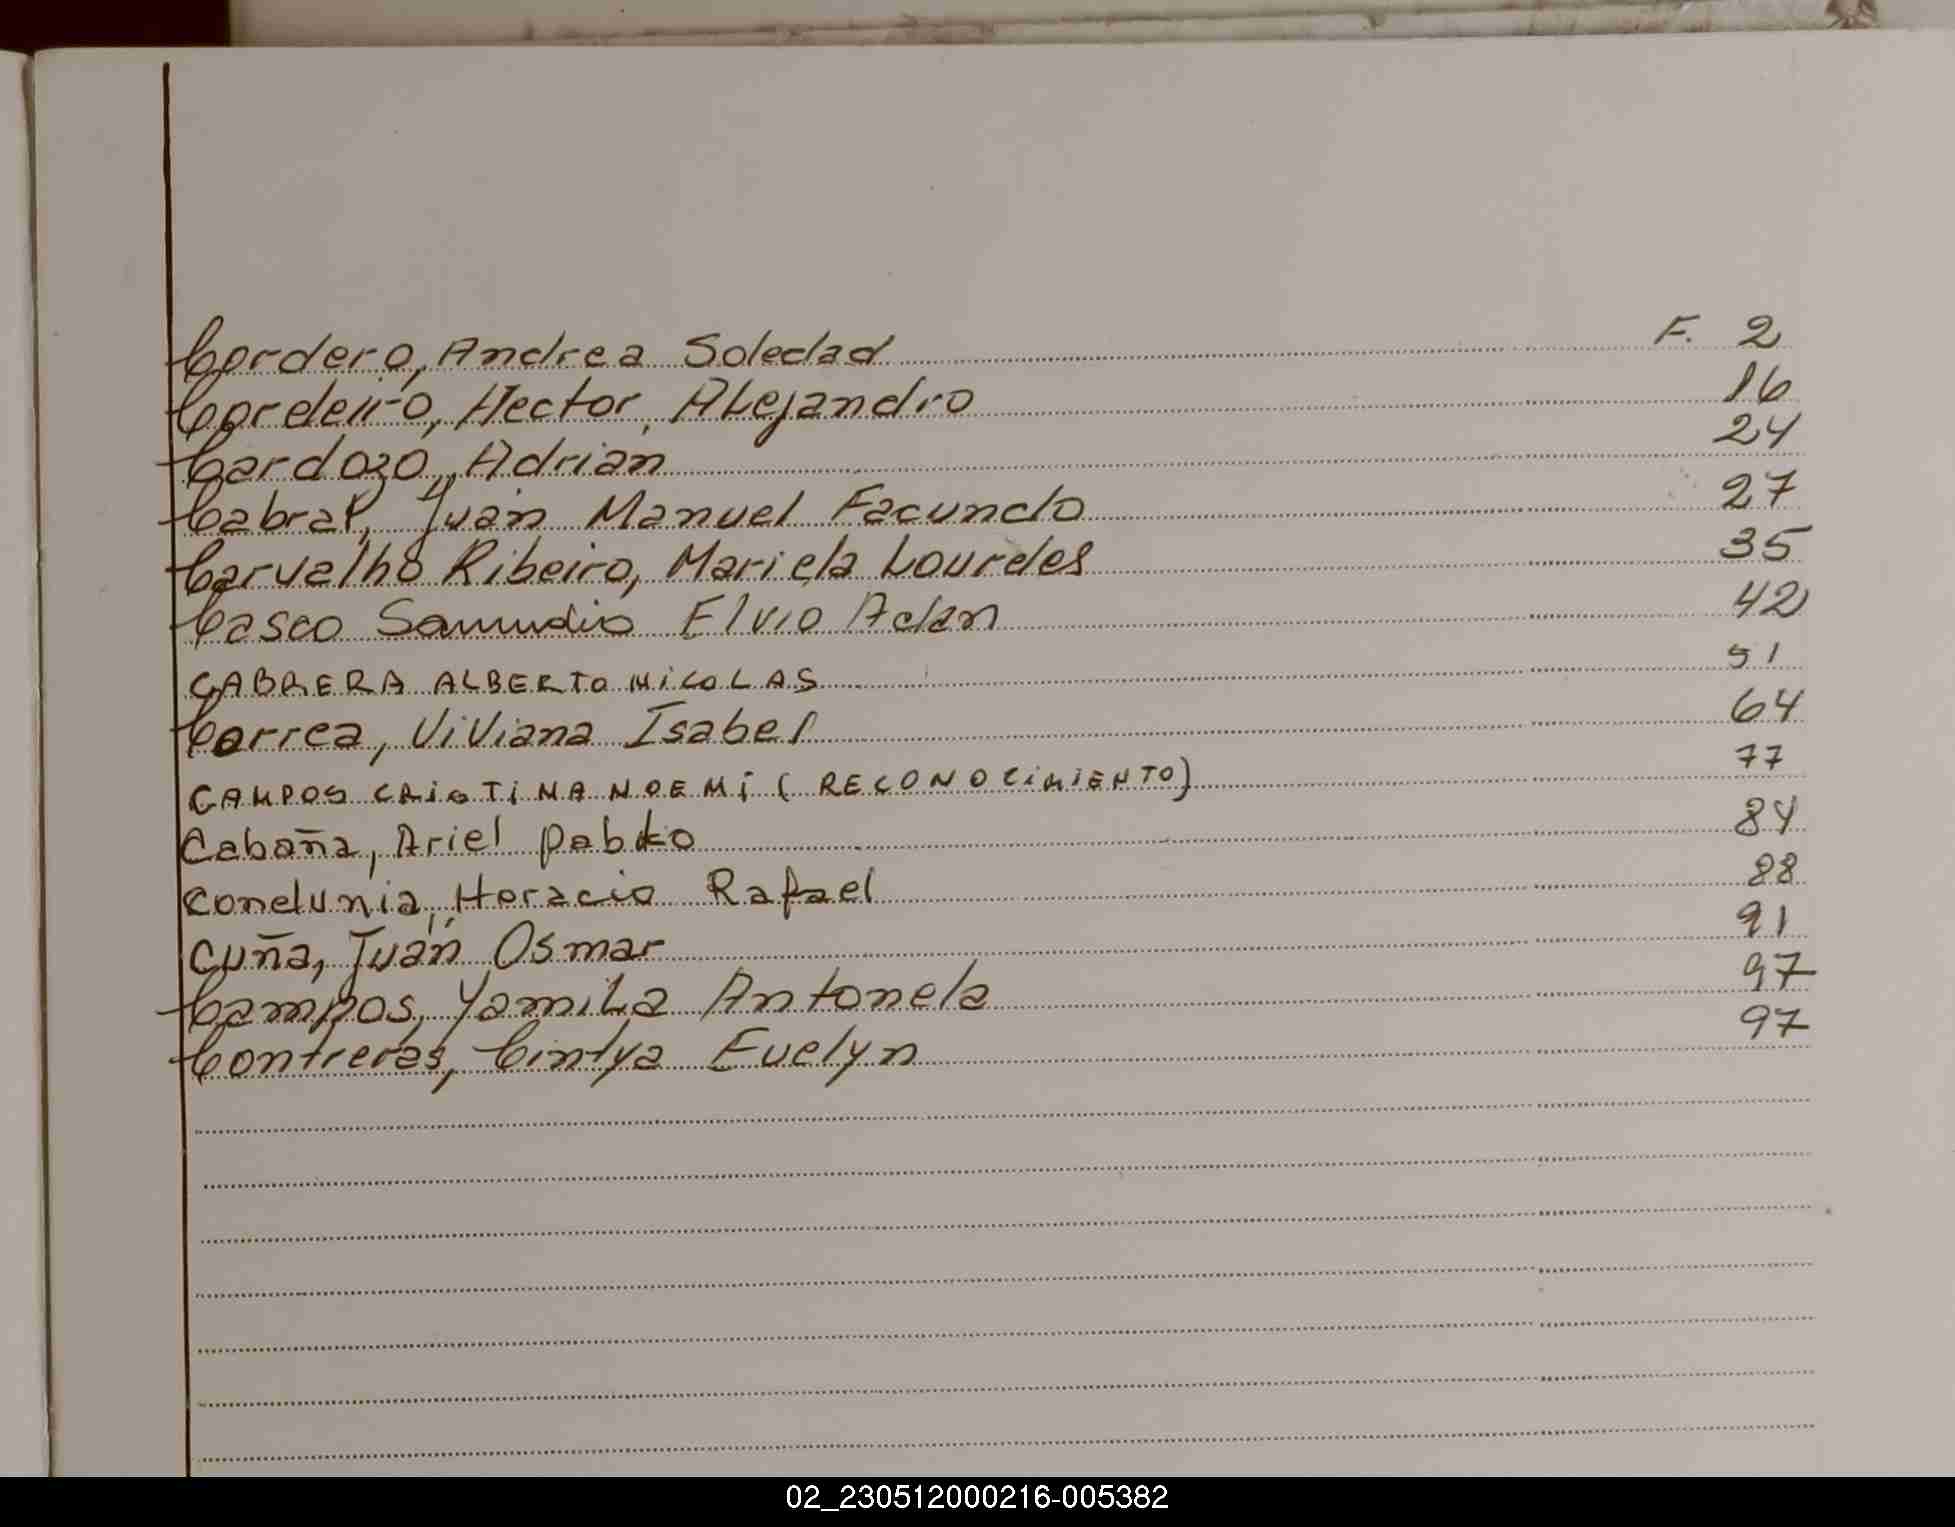 Cordero, Andrea Soledad F. 2
Cordeiro, Hector, Alejandro 16
Cardozo, Adrian 24
Cabral, Juan Manuel Facundo 27
Carvalho Ribeiro, Mariela Lourdes 35
Casco Samudio Elvio Adan 42
CABRERA ALBERTO NICOLAS 51
Correa, Viviana Isabel 64
CAMPOS CRISTINA NOEMI (RECONOCIMIENTO) 77
Cabaña, Ariel Pablo 84
Horacio Rafael 88
Cuña, Juan Osmar 91
Campos, Yamila Antonela 97
Contreras, Cintya Evelyn 97
02_230512000216-005382